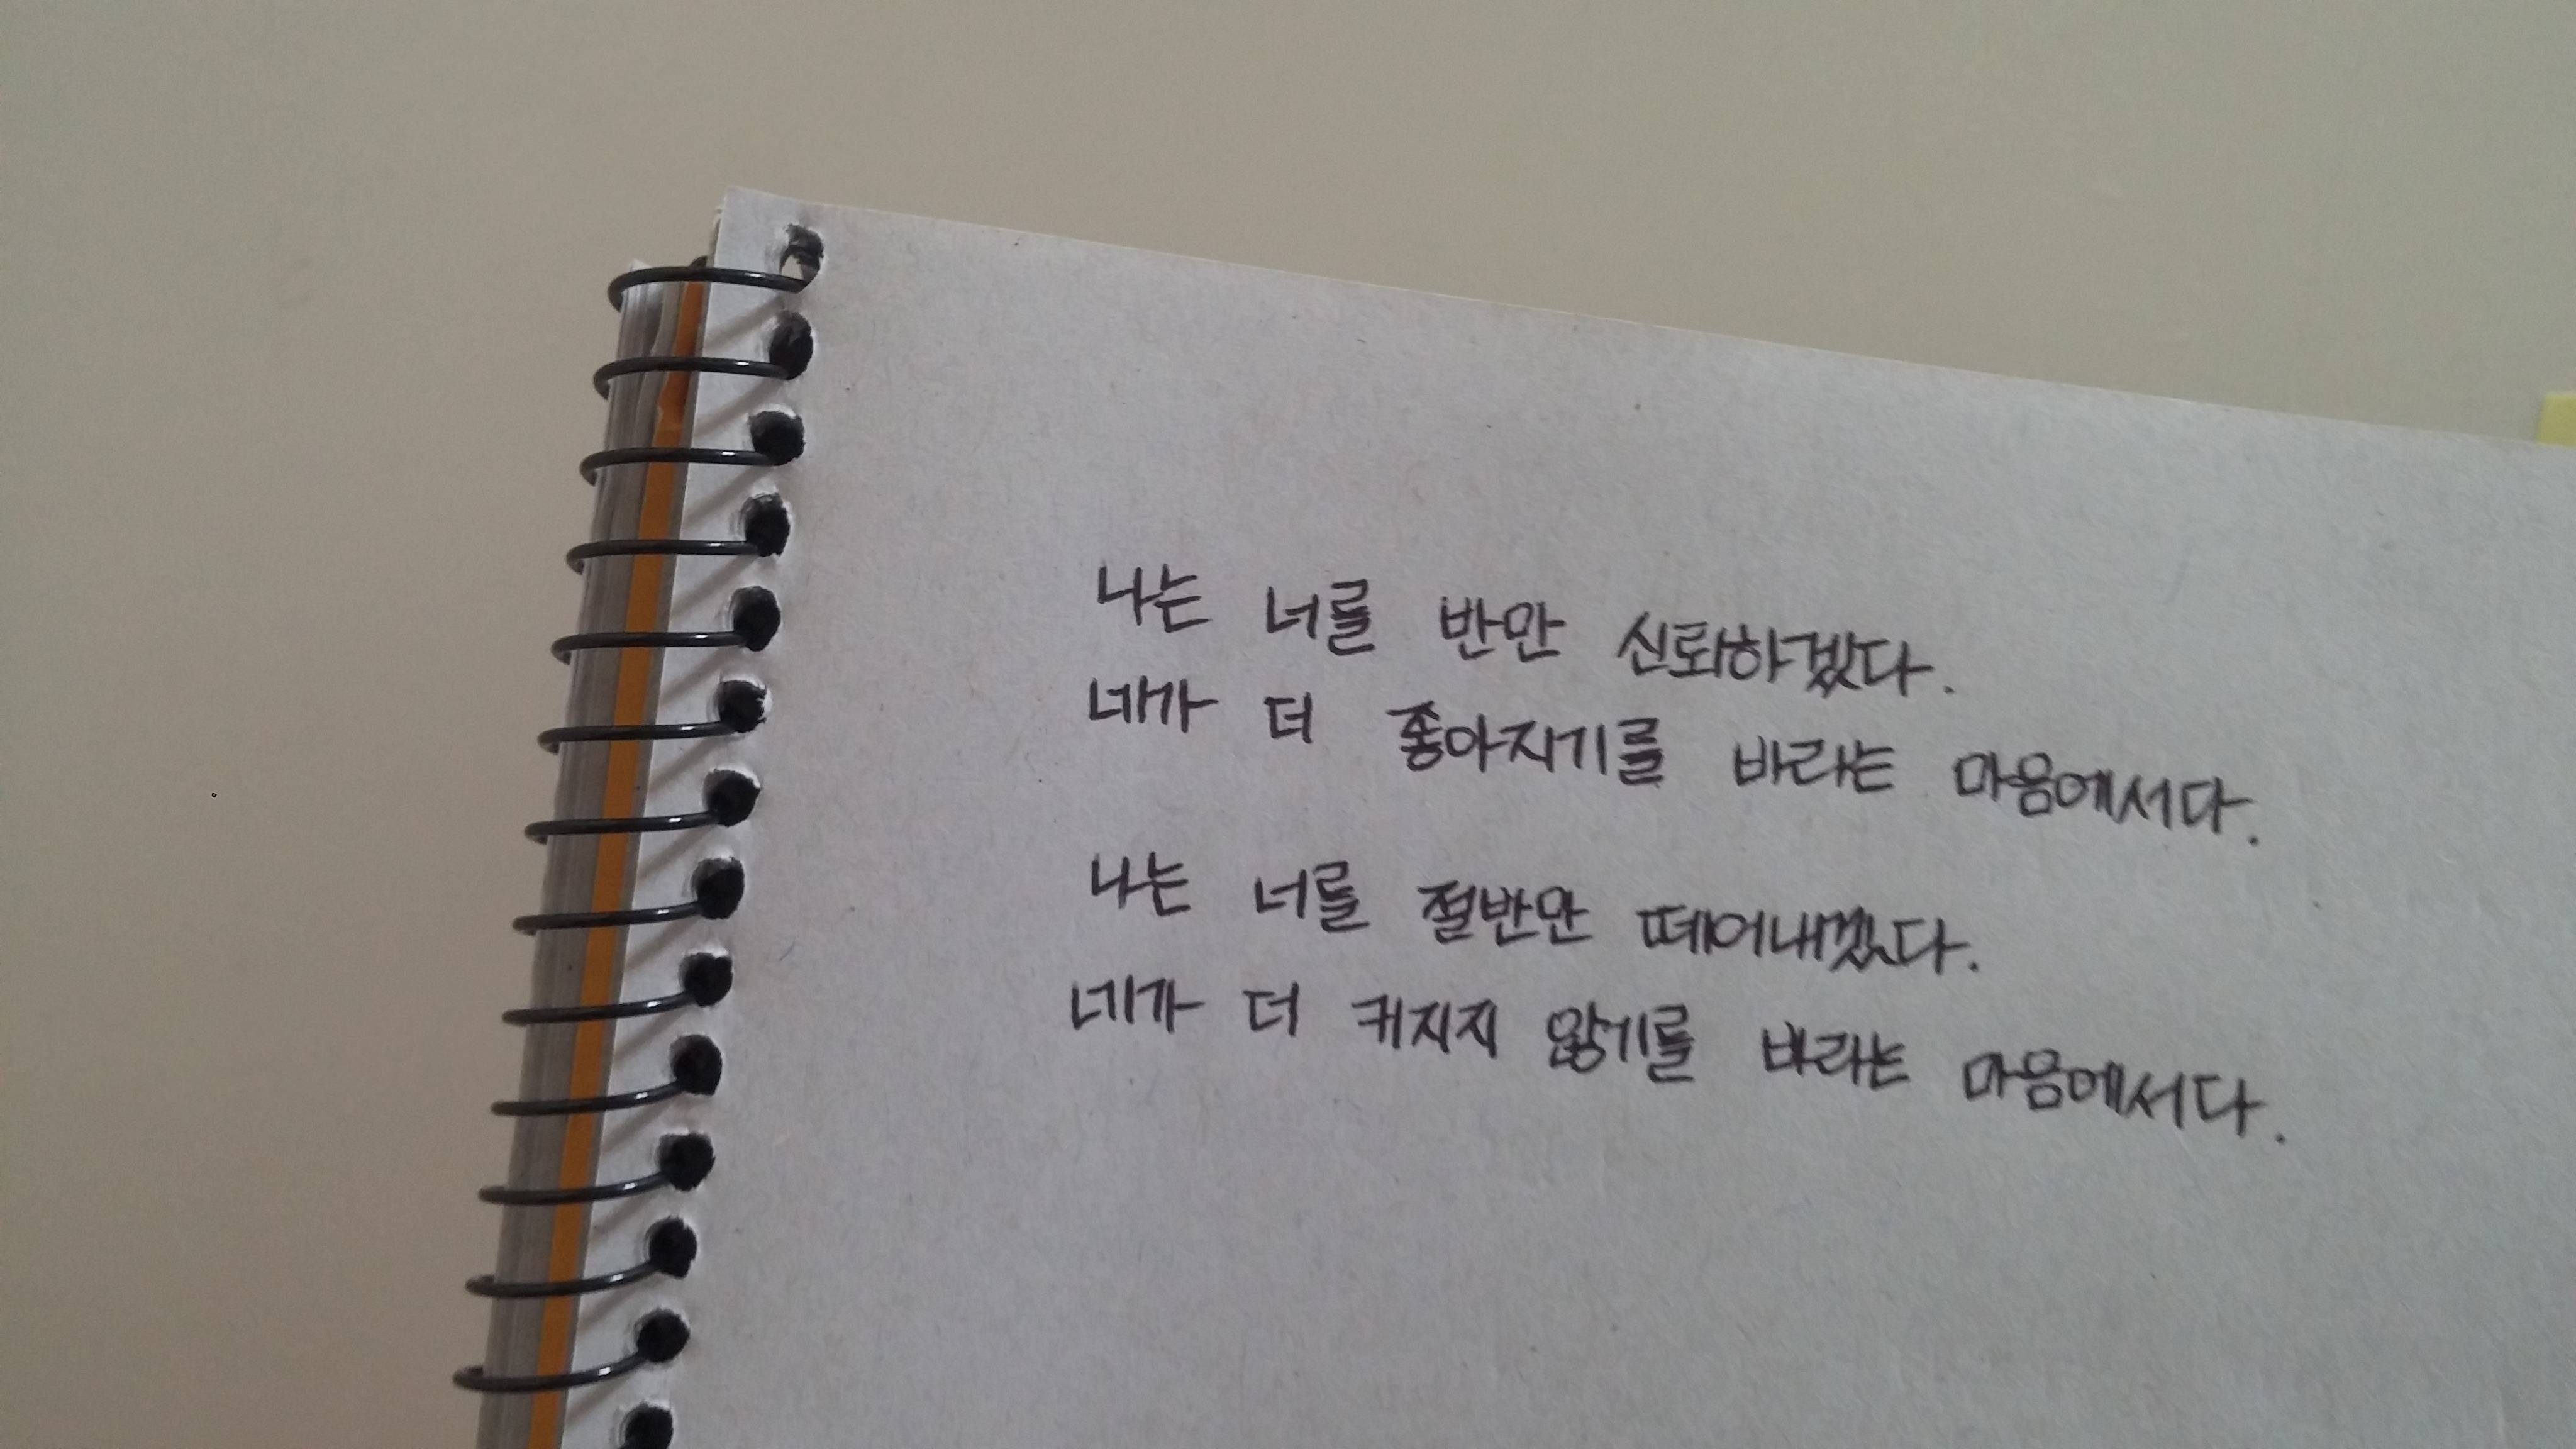 나는 너를 반만 신뢰하겠다.
네가 더 좋아지기를 바라는 마음에서다.
나는 너를 절반만 떼어내겠다.
네가 더 커지지 않기를 바라는 마음에서다.